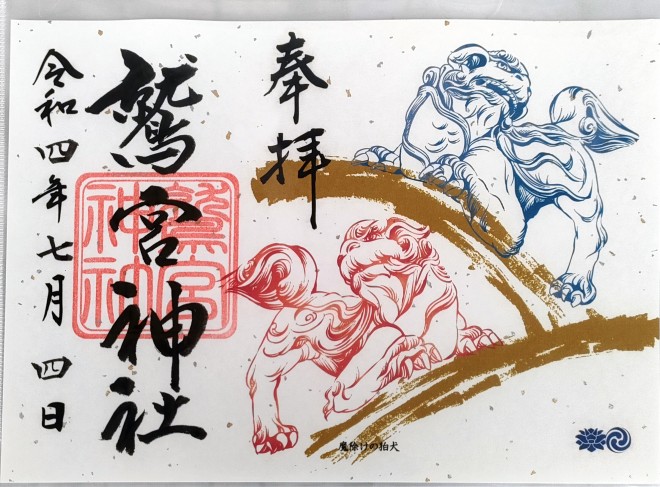 奉拝
鷲宮神社
鷲宮
神社
令和四年七月四日
魔除けの狛犬